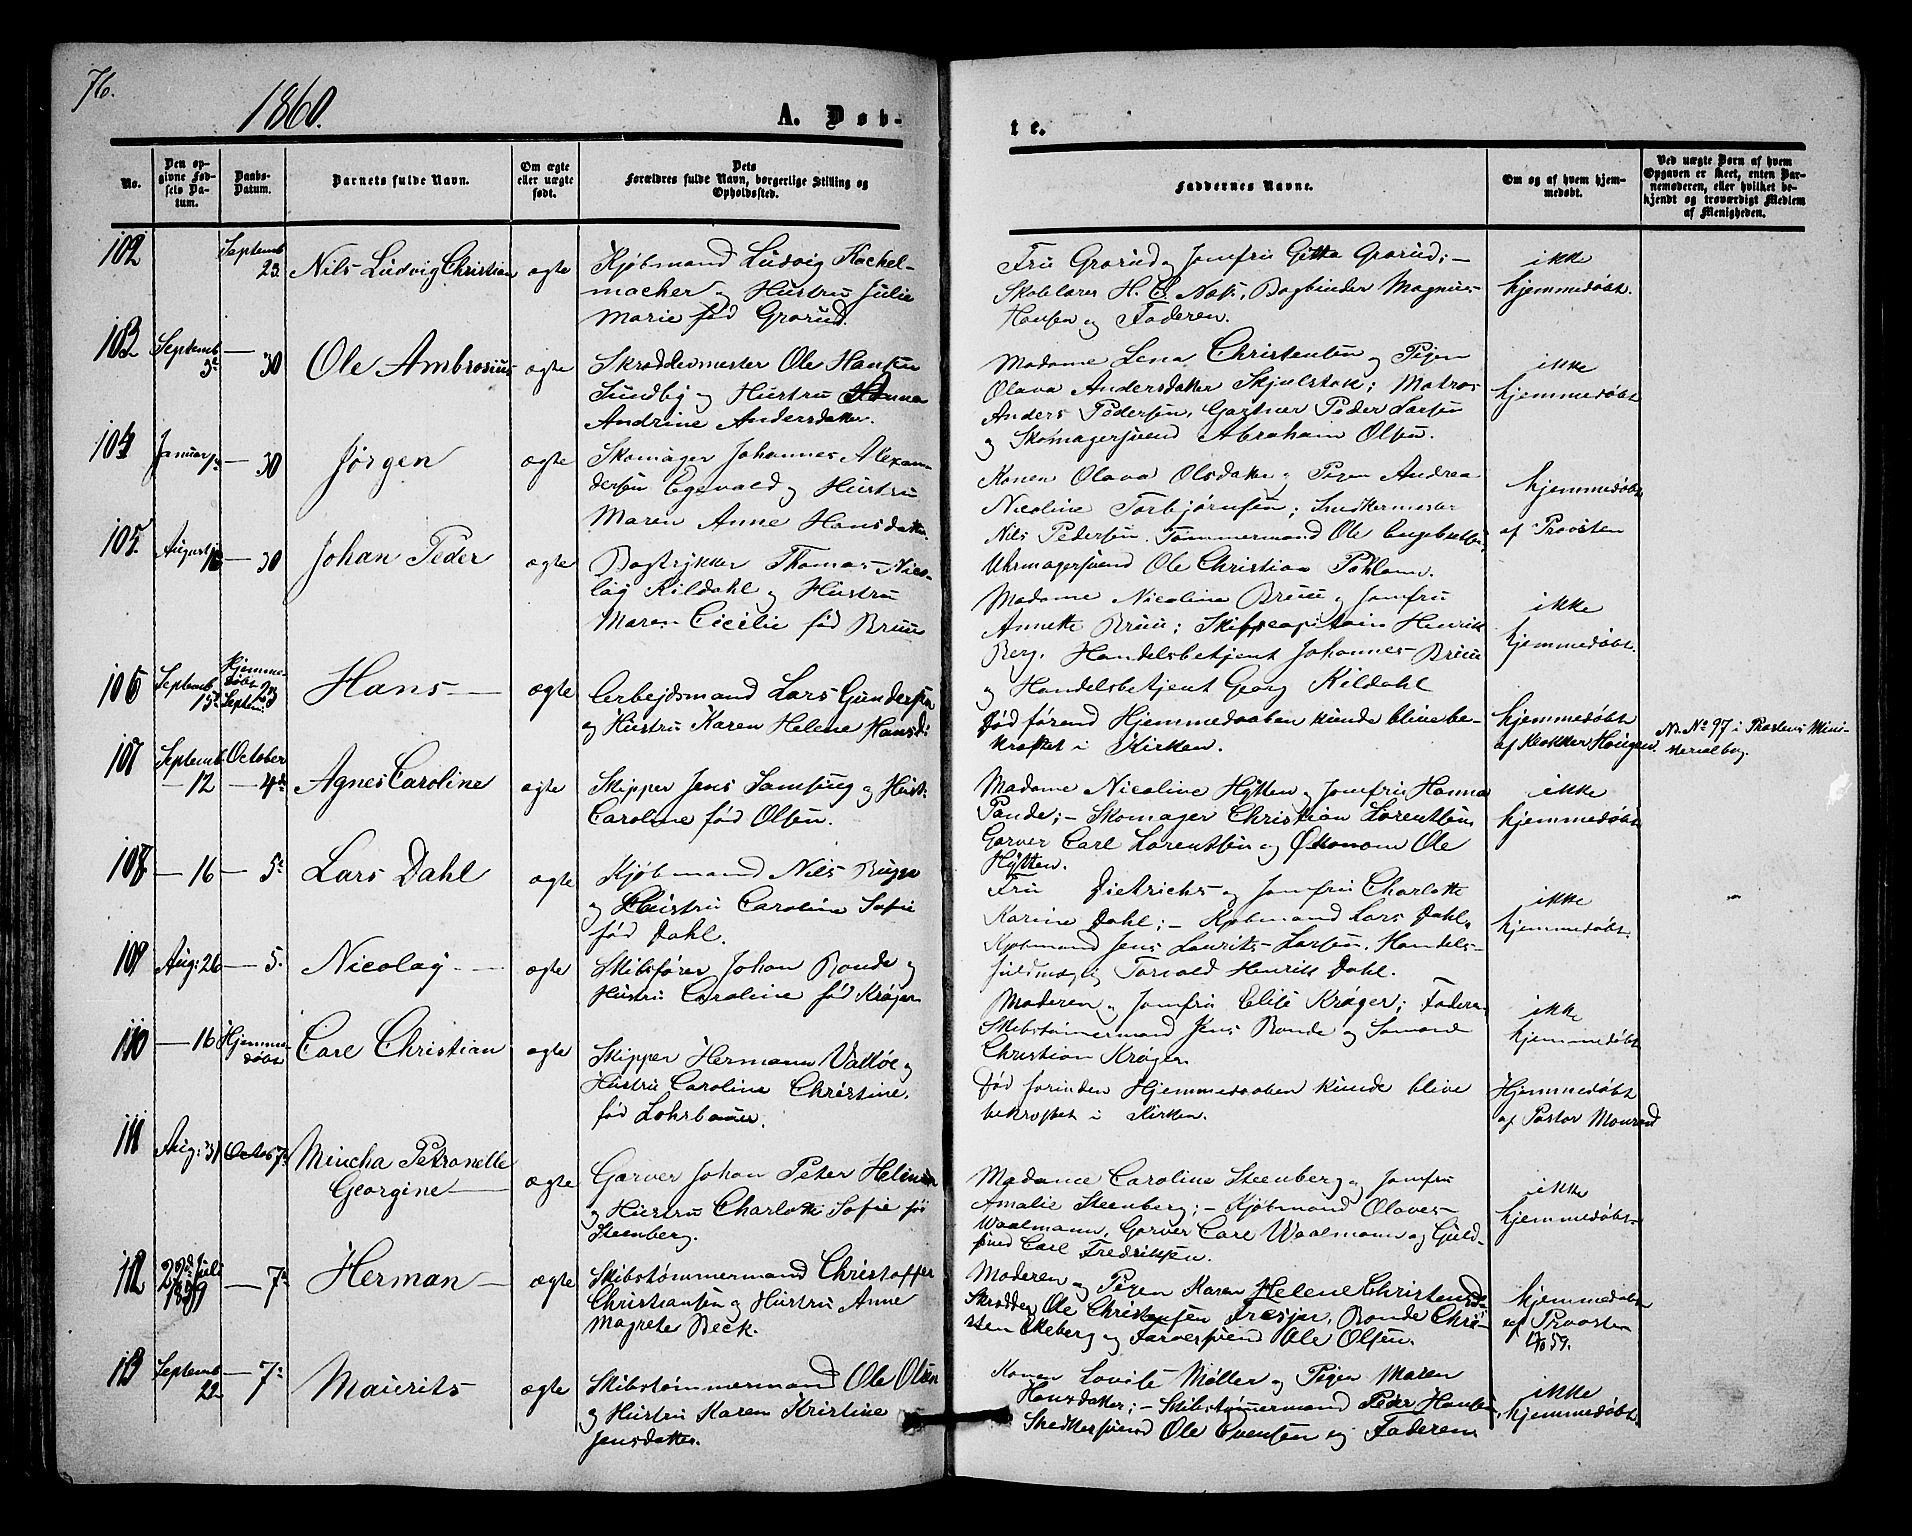 76.
1860.
A. Døb-
te.
No.
Den op-
givne Fød-
sels Da-
tum.
Daabs-
Datum.
Barnets fulde Navn.
Om ægte
eller uægte
født.
Dets
Forældres fulde Navn, borgerlige Stilling og
Opholdssted.
Faddernes Navne.
Om og af hvem hjem-
medøbt.
Ved uægte Børn af hvem
Opgaven er skeet, enten Bar-
nemoderen, eller hvilket be-
kjendt og troværdigt Medlem
af Menigheden.
102
Septemb
23.
Nils Ludvig Christian
ægte
Kjøbmand Ludvig Kachel-
macher og Hustru Julie
Marie fød Grorud.
Fru Grorud og Jomfru Gitta Grorud; —
Skolelærer H. C. Næs, Bogbinder Magnus
Hansen og Faderen.
ikke
hjemmedøbt.
103
Septemb
3d
— 30
Ole Ambrosius
ægte
Skræddermester Ole Hansen
Sundby og Hustru Anna
Andrine Andersdatter.
Madame Lena Christensen og Pigen
Olava Andersdatter Skjulstok; Matros
Anders Pedersen, Gartner Peder Larsen
og Skomagersvend Abraham Olsen.
ikke
hjemmedøbt
104
Januar
— 30
Jørgen
ægte
Skomager Johannes Alexan-
dersen Egevald og Hustru
Maren Anne Hansdatter.
Konen Olava Olsdatter, Pigen Andrea
Nicoline Torbjørnsen; Snedkermester
Nils Pedersen. Tømmermand Ole Engebretsen,
Uhrmagersvend Ole Christian
hjemmedøbt
af Provsten
105.
August
16
— 30
Johan Peder
ægte
Bogtrykker Thomas Nico-
lay Kildahl og Hustru
Maren Cicilie fød Bruu
Madame Nicoline Bruu og Jomfru
Annette Bruu; Skibscapitain Henrik
Berg. Handelsbetjent Johannes Bruu
og Handelsbetjent Georg Kildahl
ikke
hjemmedøbt.
106
Septemb
15d
Hjemme-
døbt 23
Septemb
Hans —
ægte
Arbejdsmand Lars Gundersen
og Hustru Karen Helene Hansd:
Død førend Hjemmedaaben kunde blive be-
kræftet i Kirken.
hjemmedøbt
af Klokker Haugen.
Nr. No 97 i Provstens Mini-
sterialbog.
107
Septemb
— 12
October
— 4de
Agnes Caroline
ægte
Skipper Jens Samsing og Hust.
Caroline fød Olsen.
Madame Nicoline Hytten og Jomfru Hanna
Pande; — Skomager Christian Lorentsen
Garver Carl Lorentsen og Økonom Ole
Hytten.
ikke
hjemmedøbt
108
— 16
— 5te
Lars Dahl
ægte
Kjøbmand Nils Bugge
og Hustru Caroline Sofie
fød Dahl.
Fru Dietrichs og Jomfru Charlotte
Karine Dahl; — Kjøbmand Lars Dahl,
Kjøbmand Jens Laurits Larsen. Handels-
fuldmægtig Torvald Henrik Dahl.
ikke
hjemmedøbt.
109
Aug: 26
— 5.
Nicolay —
ægte
Skibsfører Johan Bonde og
Hustru Caroline fød Krøger
Moderen og Jomfru Elise Krøger; Faderen
Skibstømmermand Jens Bonde og Sømand
Christian Krøger
ikke
hjemmedøbt
110
— 16
Hjemme-
døbt
Carl Christian
ægte
Skipper Hermann Valløe og
Hustru Caroline Christine
fød Lohrbauer.
Død forinden Hjemmedaaben kunde blive
bekræftet i Kirken.
Hjemmedøbt
af Pastor Monrad
111
Aug: 31
Octob 7de
Mincha Petronelle
Georgine —
ægte
Garver Johan Peter Helmin
og Hustru Charlotte Sofie fød
Steenberg.
Madame Caroline Steenberg og Jomfru
Amalie Steenberg; — Kjøbmand Olaves
Waalmann, Garver Carl Waalmann og Guld-
svend Carl Fredriksen.
ikke
hjemmedøbt
112
22d Juli
1859
— 7de
Herman —
ægte
Skibstømmermand Christoffer
Christiansen og Hustru Anne
Magrete Beck.
Moderen og Pigen Karen Helene Christensd-
Skrædder Ole Christensen Bonde Chri-
sten Ekeberg og Farversvend Ole Olsen.
hjemmedøbt
af Provsten
59.
113
Septemb
23
— 7de
Maurits
ægte
Skibstømmermand Ole Olsen
og Hustru Karen Kristine
Jensdatter.
Konen Lovise Møller og Pigen Maren
Hansdatter; — Skibstømmermand Peder Hansen,
Snedkersvend Ole Evensen og Faderen
ikke
hjemmedøbt.